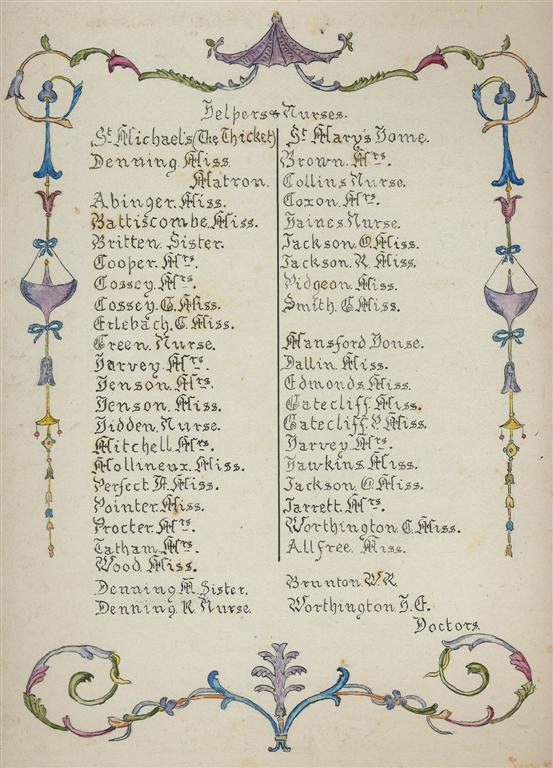 Helpers & Nurses.
St. Michael's (The Thicket)
Denning. Miss.
Matron.
Abinger. Miss.
Battiscombe. Miss.
Britten. Sister.
Cooper. Mrs.
Cossey. Mrs.
Cossey. G. Miss.
Erlebach. C. Miss.
Green. Nurse.
Harvey. Mrs.
Henson. Mrs.
Henson. Miss.
Hidden. Nurse.
Mitchell. Mrs.
Mollineux. Miss.
Perfect. Miss.
Pointer. Miss.
Procter. Mrs.
Tatham. Mrs.
Wood. Miss.
Denning. M. Sister.
Denning. R. Nurse.
St. Mary's Home.
Brown. Mrs.
Collins. Nurse.
Coxon. Mrs.
Haines. Nurse.
Jackson. O. Miss.
Jackson. R. Miss.
Pidgeon. Miss.
Smith. Miss.
Mansford House.
Dallin. Miss.
Edmonds. Miss.
Gatecliff. Miss.
Gatecliff. Miss.
Harvey. Mrs.
Hawkins. Miss.
Jackson. O. Miss.
Jarrett. Mrs.
Worthington. C. Miss.
Allfree. Miss.
Brunton. W. R.
Worthington. H. E.
Doctors.